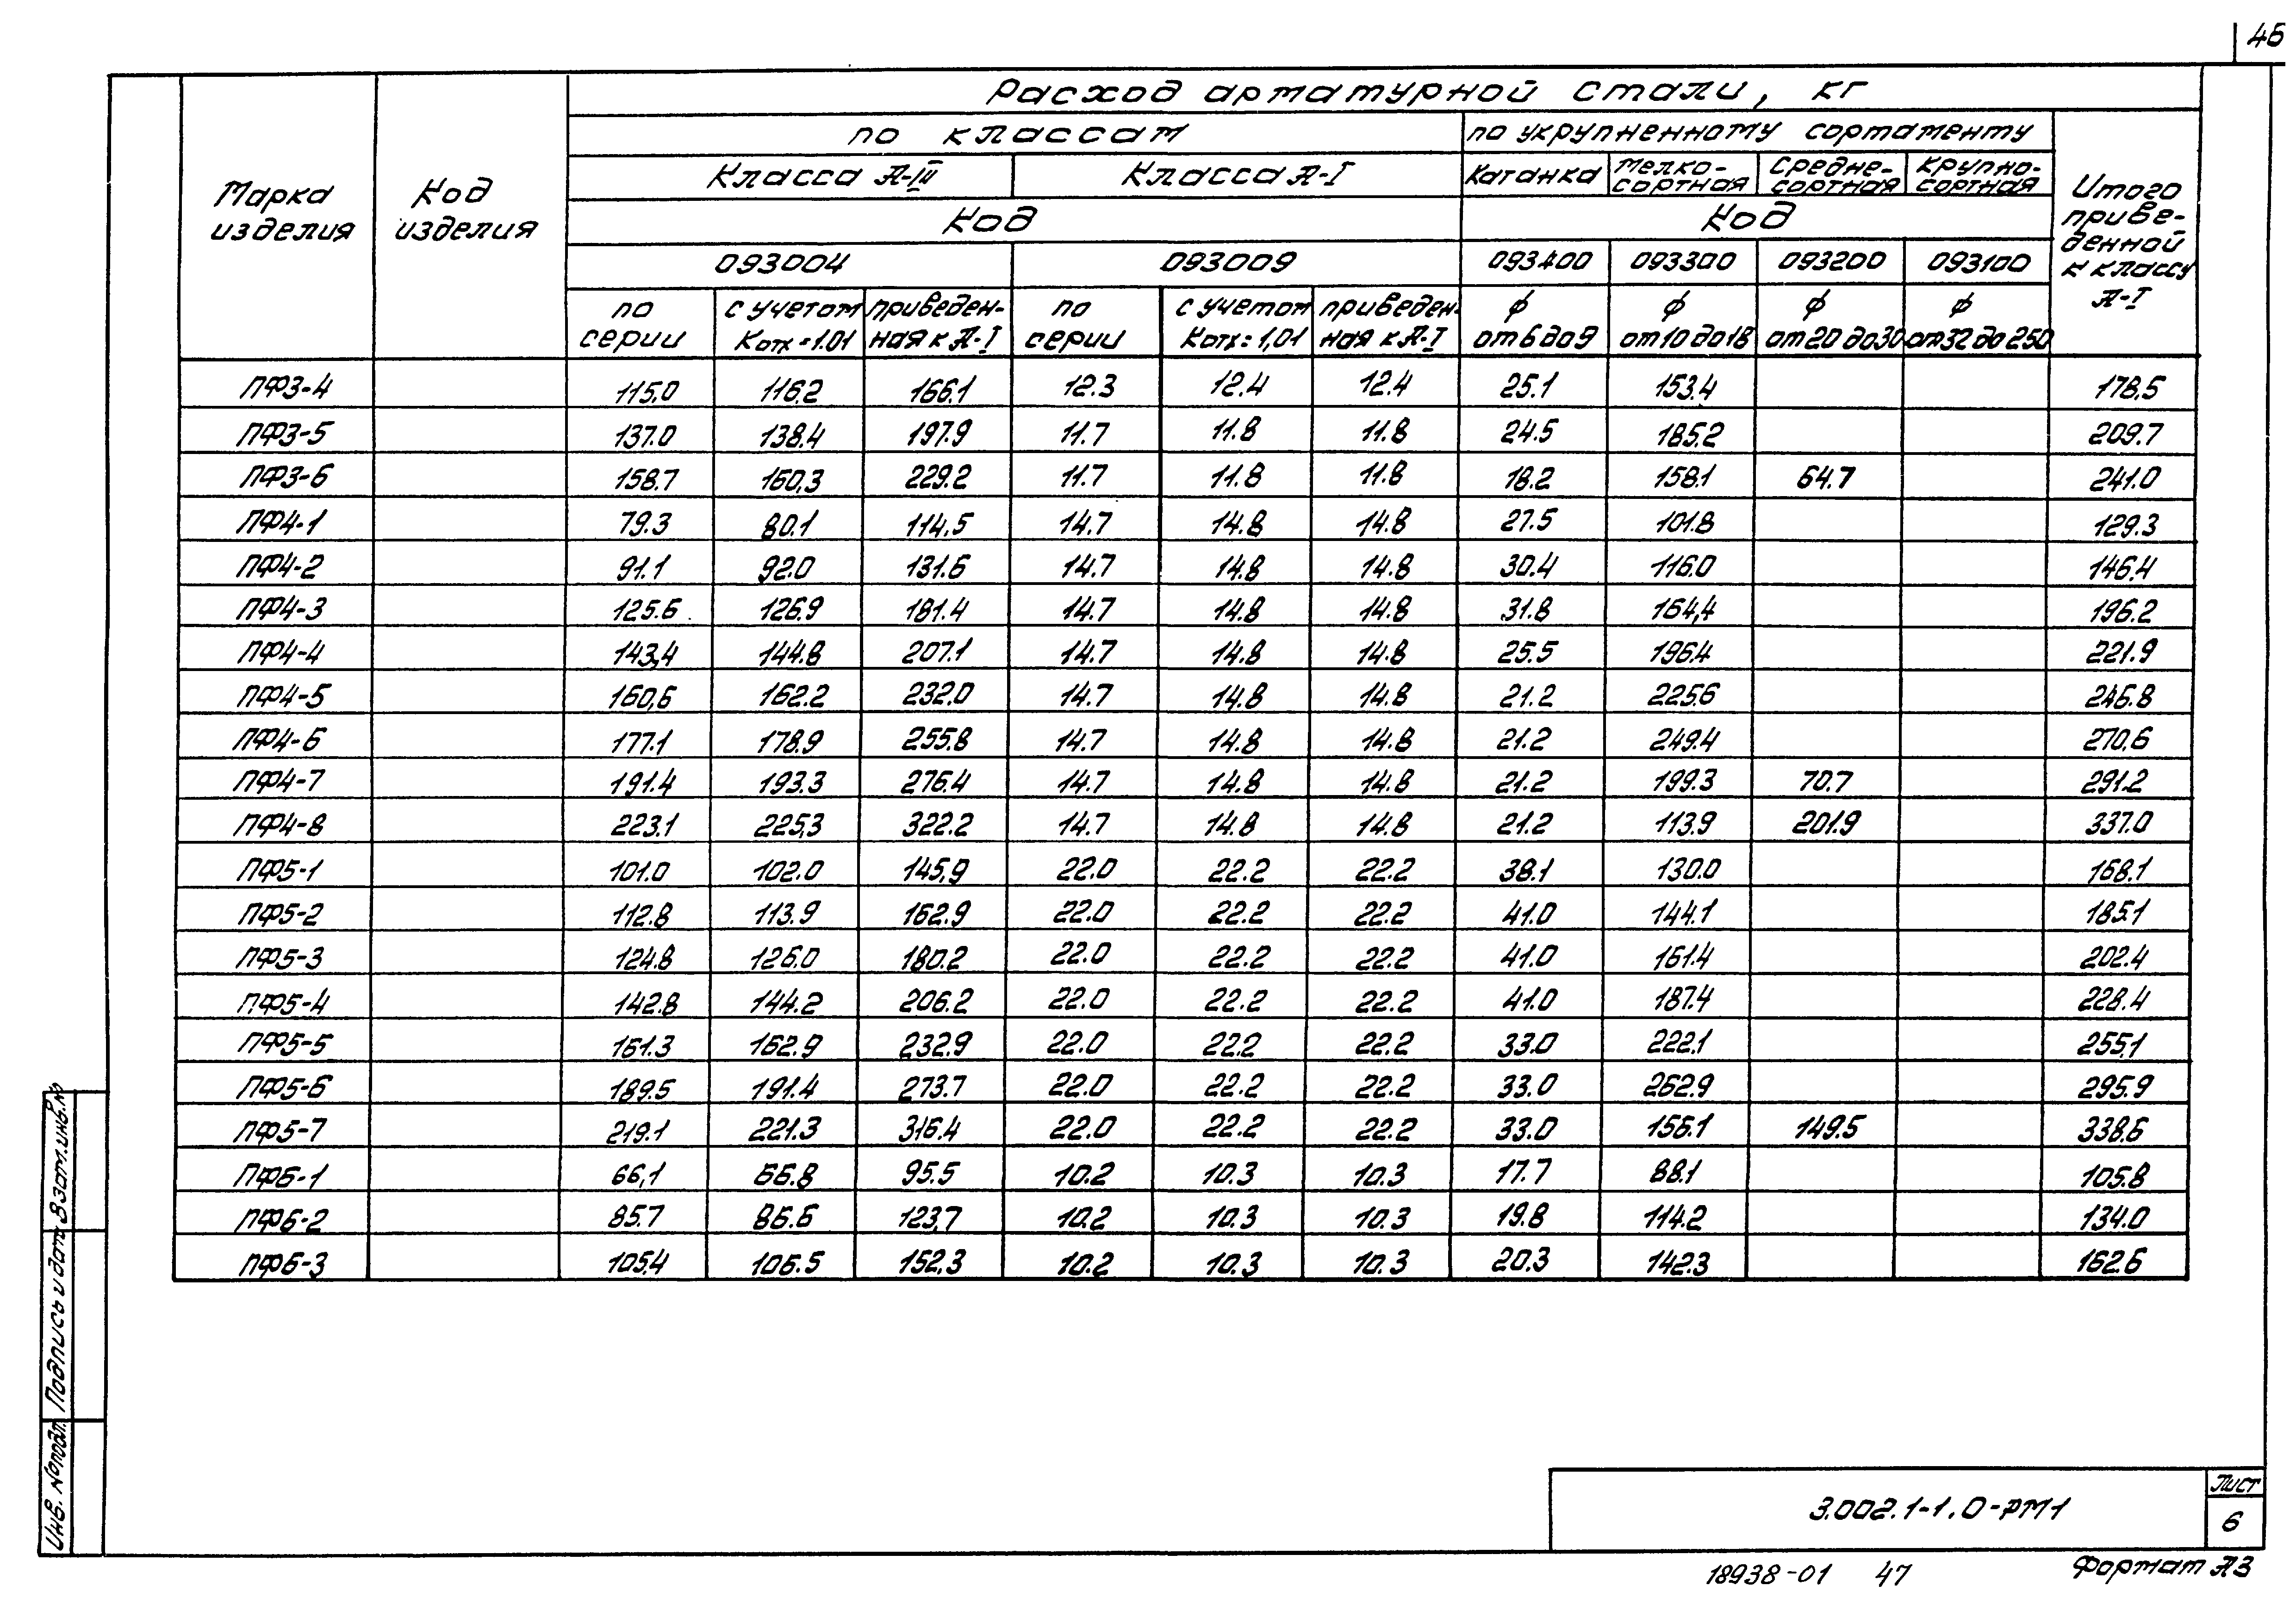 46
Расход арматурной стали, кг
по классам
по укрупненному сортаменту
Марка изделия
Код изделия
Класса А-III
Класса А-I
Катанка
Мелко-сортная
Средне-сортная
Крупно-сортная
Итого приве-денной к классу А-I
Код
Код
093004
093009
093400
093300
093200
093100
по серии
с учетом Котх=1.01
приведен-ная к А-I
по серии
с учетом Котх=1,01
приведен-ная к А-I
ϕ от 6 до 9
ϕ от 10 до 18
ϕ от 20 до 30
ϕ от 32 до 250
ПФ3-4 115,0 116,2 166,1 12.3 12.4 12.4 25.1 153.4 178,5
ПФ3-5 137.0 138.4 197.9 11.7 11.8 11.8 24.5 185.2 209.7
ПФ3-6 158.7 160,3 229.2 11.7 11.8 11.8 18.2 158.1 64.7 241.0
ПФ4-1 79.3 80.1 114.5 14.7 14.8 14.8 27.5 101.8 129.3
ПФ4-2 91.1 92.0 131.6 14.7 14.8 14.8 30.4 116.0 146.4
ПФ4-3 125.6 126.9 181.4 14.7 14.8 14.8 31.8 164,4 196.2
ПФ4-4 143,4 144.8 207.1 14.7 14.8 14.8 25.5 196.4 221.9
ПФ4-5 160,6 162.2 232.0 14.7 14.8 14.8 21.2 225.6 246.8
ПФ4-6 177.1 178.9 255.8 14.7 14.8 14.8 21.2 249.4 270,6
ПФ4-7 191.4 193.3 276.4 14.7 14.8 14.8 21.2 199.3 70.7 291.2
ПФ4-8 223.1 225,3 322.2 14.7 14.8 14.8 21.2 113.9 201.9 337.0
ПФ5-1 101.0 102.0 145,9 22.0 22.2 22.2 38.1 130.0 168.1
ПФ5-2 112.8 113.9 162.9 22.0 22.2 22.2 41.0 144.1 185.1
ПФ5-3 124.8 126.0 180.2 22.0 22.2 22.2 41.0 161.4 202.4
ПФ5-4 142.8 144.2 206.2 22.0 22.2 22.2 41.0 187.4 228.4
ПФ5-5 161.3 162.9 232.9 22.0 22.2 22.2 33.0 222.1 255,1
ПФ5-6 189.5 191.4 273.7 22.0 22.2 22.2 33.0 262.9 295.9
ПФ5-7 219.1 221.3 316.4 22.0 22.2 22.2 33.0 156.1 149.5 338.6
ПФ6-1 66,1 66.8 95.5 10.2 10.3 10.3 17.7 88.1 105.8
ПФ6-2 85.7 86.6 123,7 10.2 10.3 10.3 19.8 114.2 134.0
ПФ6-3 105,4 106.5 152.3 10.2 10.3 10.3 20.3 142.3 162.6
Взам.инв.№
Подпись и дата
Инв.№подл.
3.002.1-1.0-РМ1
Лист
6
18938-01 47
Формат А3